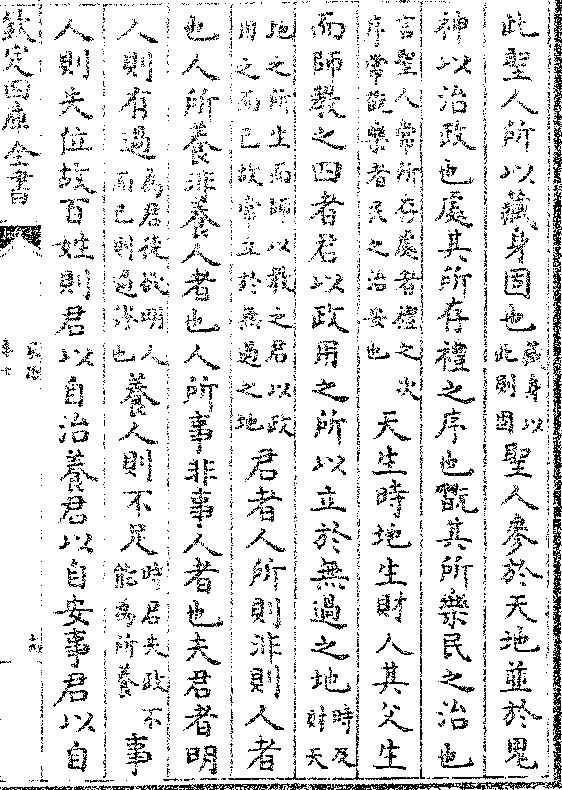 此聖人所以藏身固也藏身以此則固聖人參於天地並於鬼
神以治政也處其所存禮之序也翫其所樂民之治也
言聖人常所存處者禮之次序常翫樂者民之治安也天生時地生財人其父生
而師教之四者君以政用之所以立於無過之地時及財天
地之所生而師以教之君以政用之而已故常立於無過之地君者人所則非則人者
也人所養非養人者也人所事非事人者也夫君者明
人則有過為君徒欲明人而已則過謬也養人則不足時君失政不能為所養事
人則失位故百姓則君以自治養君以自安事君以自
欽定四庫全書